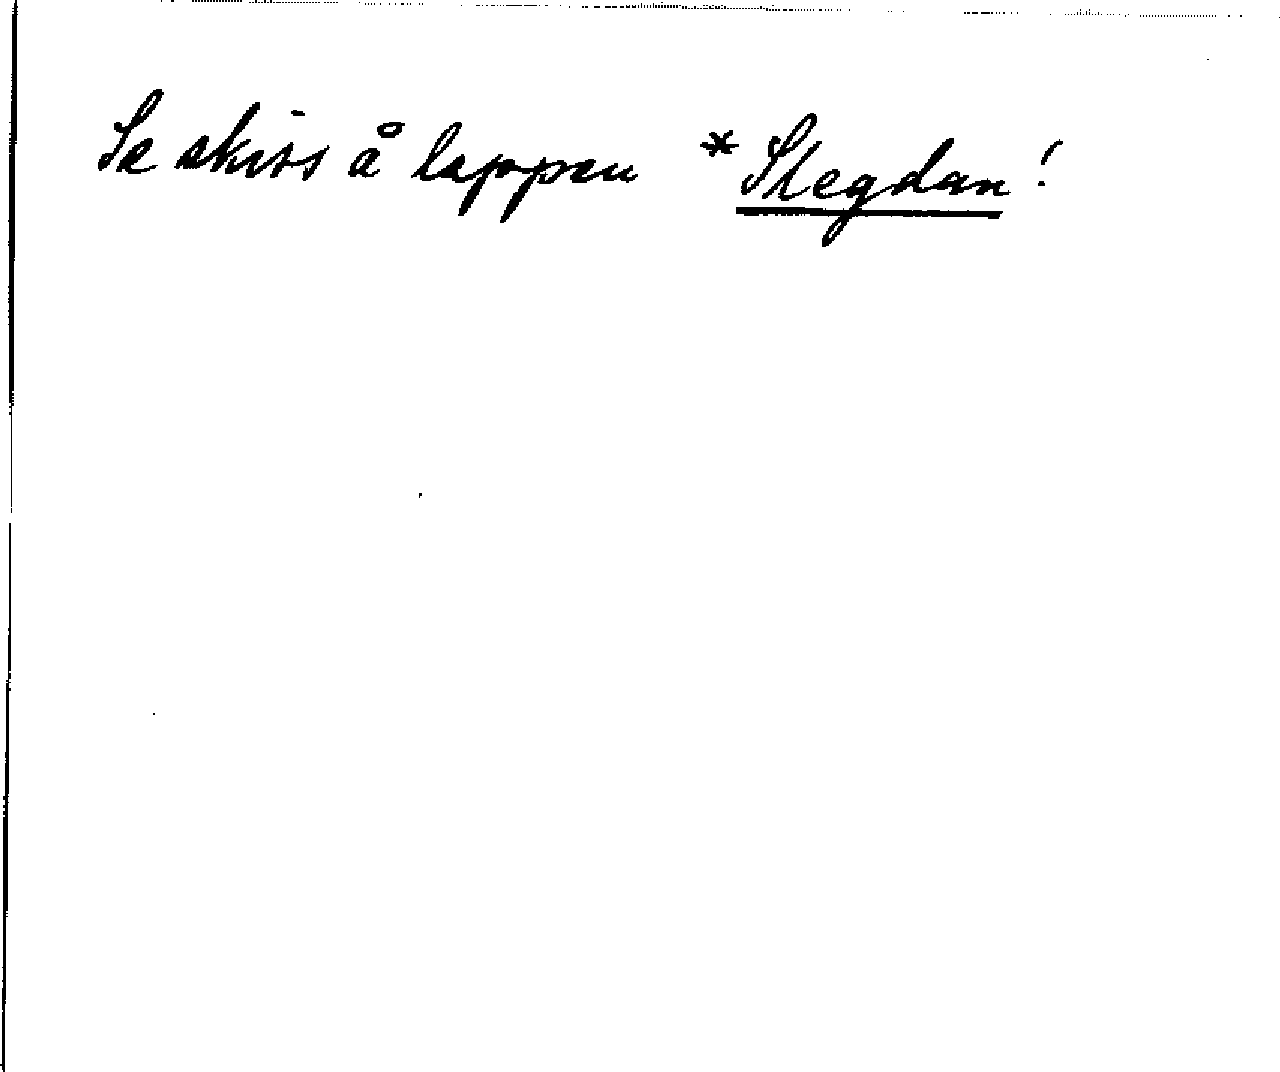 Se skiss å lappen *Slegdan!